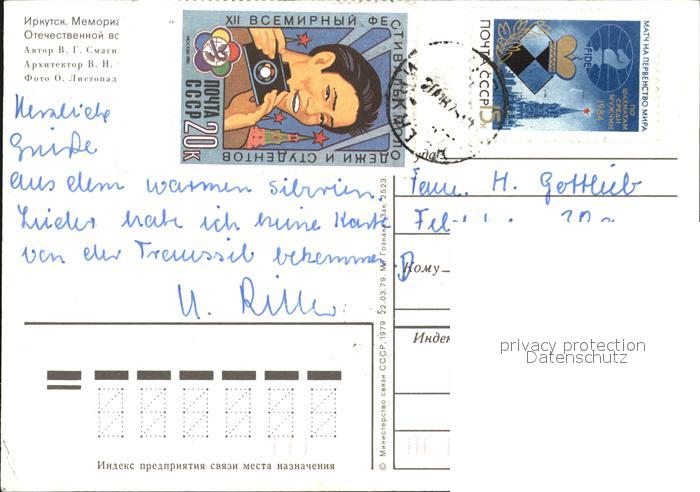 Иркутск. Мемориа
Отечественной во
Автор В. Г. Смаги
Архитектор В. Н.
Фото О. Листопад
XII ВСЕМИРНЫЙ ФЕСТИВАЛЬ МОЛОДЕЖИ И СТУДЕНТОВ
МОСКВА 1985
ПОЧТА
СССР
20К
МАТЧ НА ПЕРВЕНСТВО МИРА
ПО
ШАХМАТАМ
СРЕДИ
МУЖЧИН
1984
FIDE
ПОЧТА СССР 15к
Herzliche
Grüße
aus dem warmen Sibirien.
Leider habe ich keine Karte
von der Transsib bekommen.
U. Ritter
Fam. H. Gottlieb
D
Кому
Индек
© Министерство связи СССР, 1979 22.03.79. МТ Гознака. Зак. 2523.
Индекс предприятия связи места назначения
privacy protection
Datenschutz